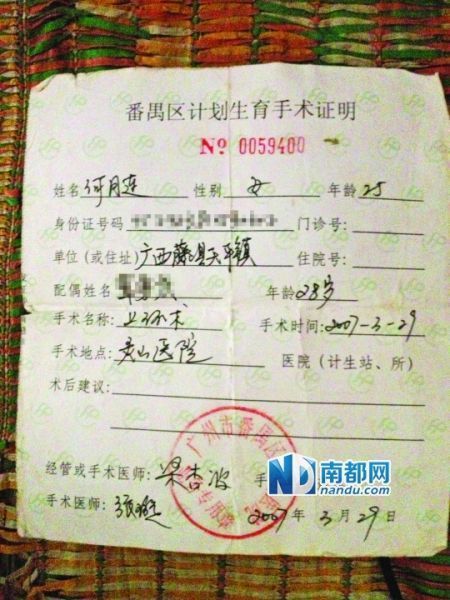 番禺区计划生育手术证明
№ 0059400
姓名 何月连 性别 女 年龄 25
身份证号码 门诊号:
单位(或住址) 广西藤县天平镇 住院号:
配偶姓名 年龄 28岁
手术名称: 上环术 手术时间: 2007-3-29
手术地点: 灵山医院 医院(计生站、所)
术后建议:
广州市番禺区
经管或手术医师: 梁杏波 手
专用章
南都网
nandu.com
手术医师: 张
2007年3月29日